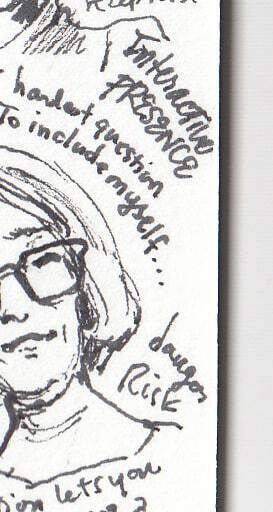 Interactive
PRESENCE
hardest question
To include myself...
danger
Risk
lets you